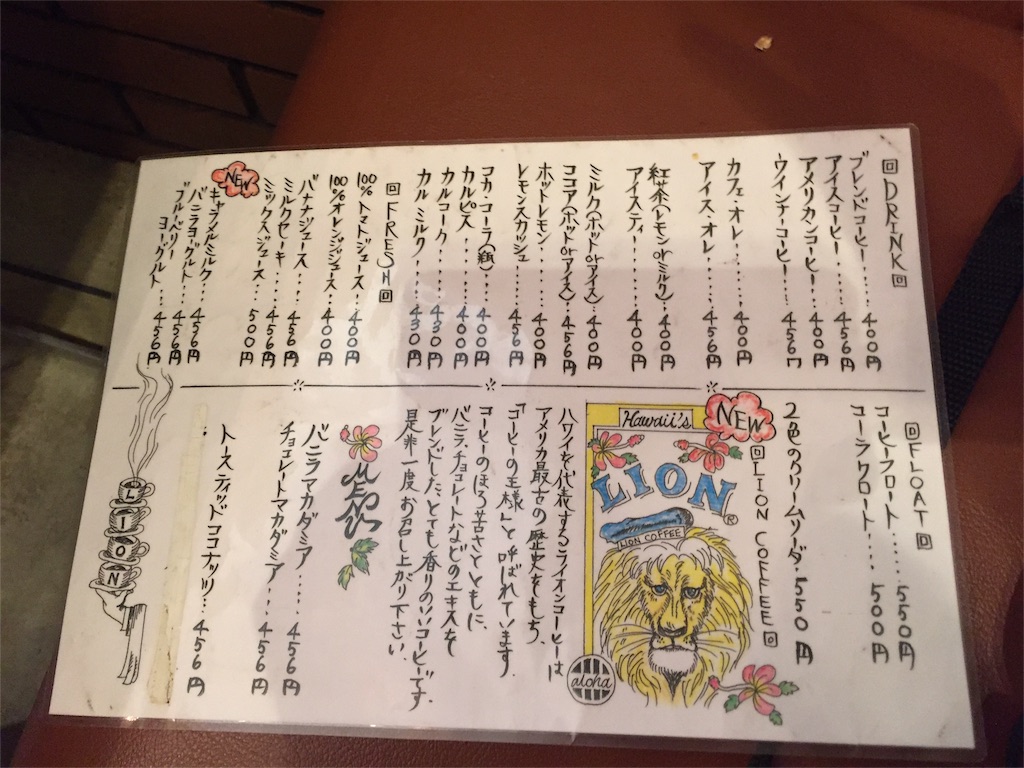 回DRINK回
ブレンドコーヒー....400円
アイスコーヒー.....456円
アメリカンコーヒー...400円
ウインナーコーヒー...456円
カフェ・オレ......400円
アイス・オレ......456円
紅茶(レモン or ミルク)...400円
アイスティー......400円
ミルク(ホット or アイス)...400円
ココア(ホット or アイス)...456円
ホットレモン......400円
レモンスカッシュ....456円
コカ・コーラ(瓶)...400円
カルピス........400円
カルコーク.......430円
カルミルク.......430円
回FRESH回
100%トマトジュース...400円
100%オレンジジュース..400円
バナナジュース.....456円
ミルクセーキ......456円
ミックスジュース....500円
NEW
キャラメルミルク....456円
バニラヨーグルト....456円
ブルーベリーヨーグルト..456円
回FLOAT回
コーヒーフロート....550円
コーラフロート.....500円
2色のクリームソーダ..550円
NEW
回LION COFFEE回
Hawaii's
LION®
LION COFFEE
aloha
ハワイを代表するライオンコーヒーは
アメリカ最古の歴史をもち、
「コーヒーの王様」と呼ばれています。
コーヒーのほろ苦さとともに、
バニラ、チョコレートなどのエキスを
ブレンドした、とても香りのいいコーヒーです。
是非一度お召し上がり下さい。
MENU
バニラマカダミア....456円
チョコレートマカダミア..456円
トースティッドココナッツ...456円
LION